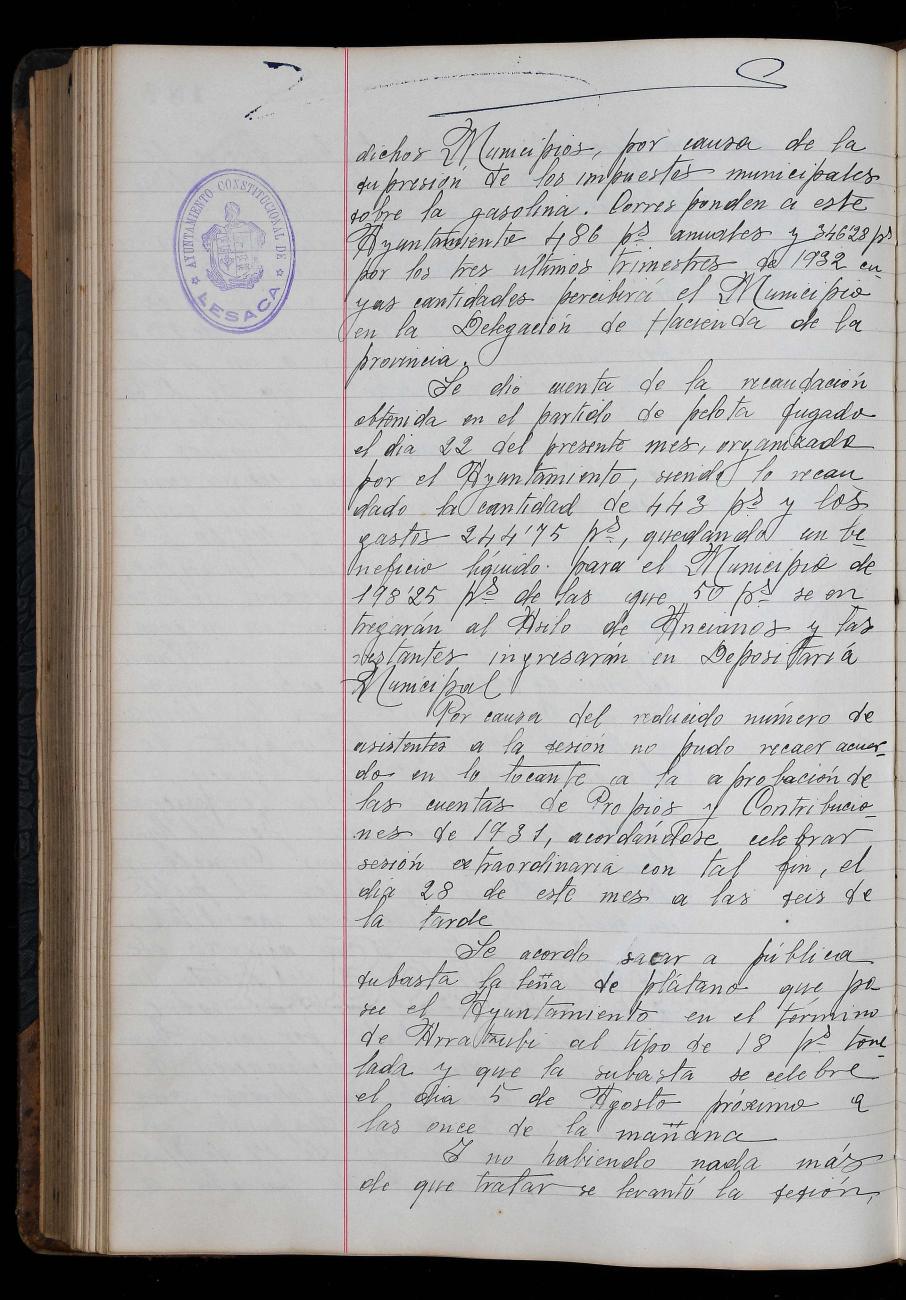 AYUNTAMIENTO CONSTITUCIONAL DE
LESACA
dichos Municipios, por causa de la
supresión de los impuestos municipales
sobre la gasolina. Corresponden a este
Ayuntamiento 486 pts anuales y 346'28 pts
por los tres ultimos trimestres de 1932 cu-
yas cantidades percibirá el Municipio
en la Delegación de Hacienda de la
provincia.
Se dio cuenta de la recaudación
obtenida en el partido de pelota jugado
el dia 22 del presente mes, organizado
por el Ayuntamiento, siendo lo recau
dado la cantidad de 443 pts y los
gastos 244'75 pts, quedando un be-
neficio líquido para el Municipio de
198'25 pts de las que 50 pts se en
tregarán al Asilo de Ancianos y las
restantes ingresarán en Depositaría
Municipal
Por causa del reducido número de
asistentes a la sesión no pudo recaer acuer-
do en lo tocante a la aprobación de
las cuentas de Propios y Contribucio-
nes de 1931, acordandose celebrar
sesión extraordinaria con tal fin, el
dia 28 de este mes a las seis de
la tarde
Se acordo sacar a pública
subasta la leña de plátano que po-
see el Ayuntamiento en el término
de al tipo de 18 pts tone-
lada y que la subasta se celebre
el dia 5 de Agosto próximo a
las once de la mañana
Y no habiendo nada más
de que tratar se levantó la sesión,